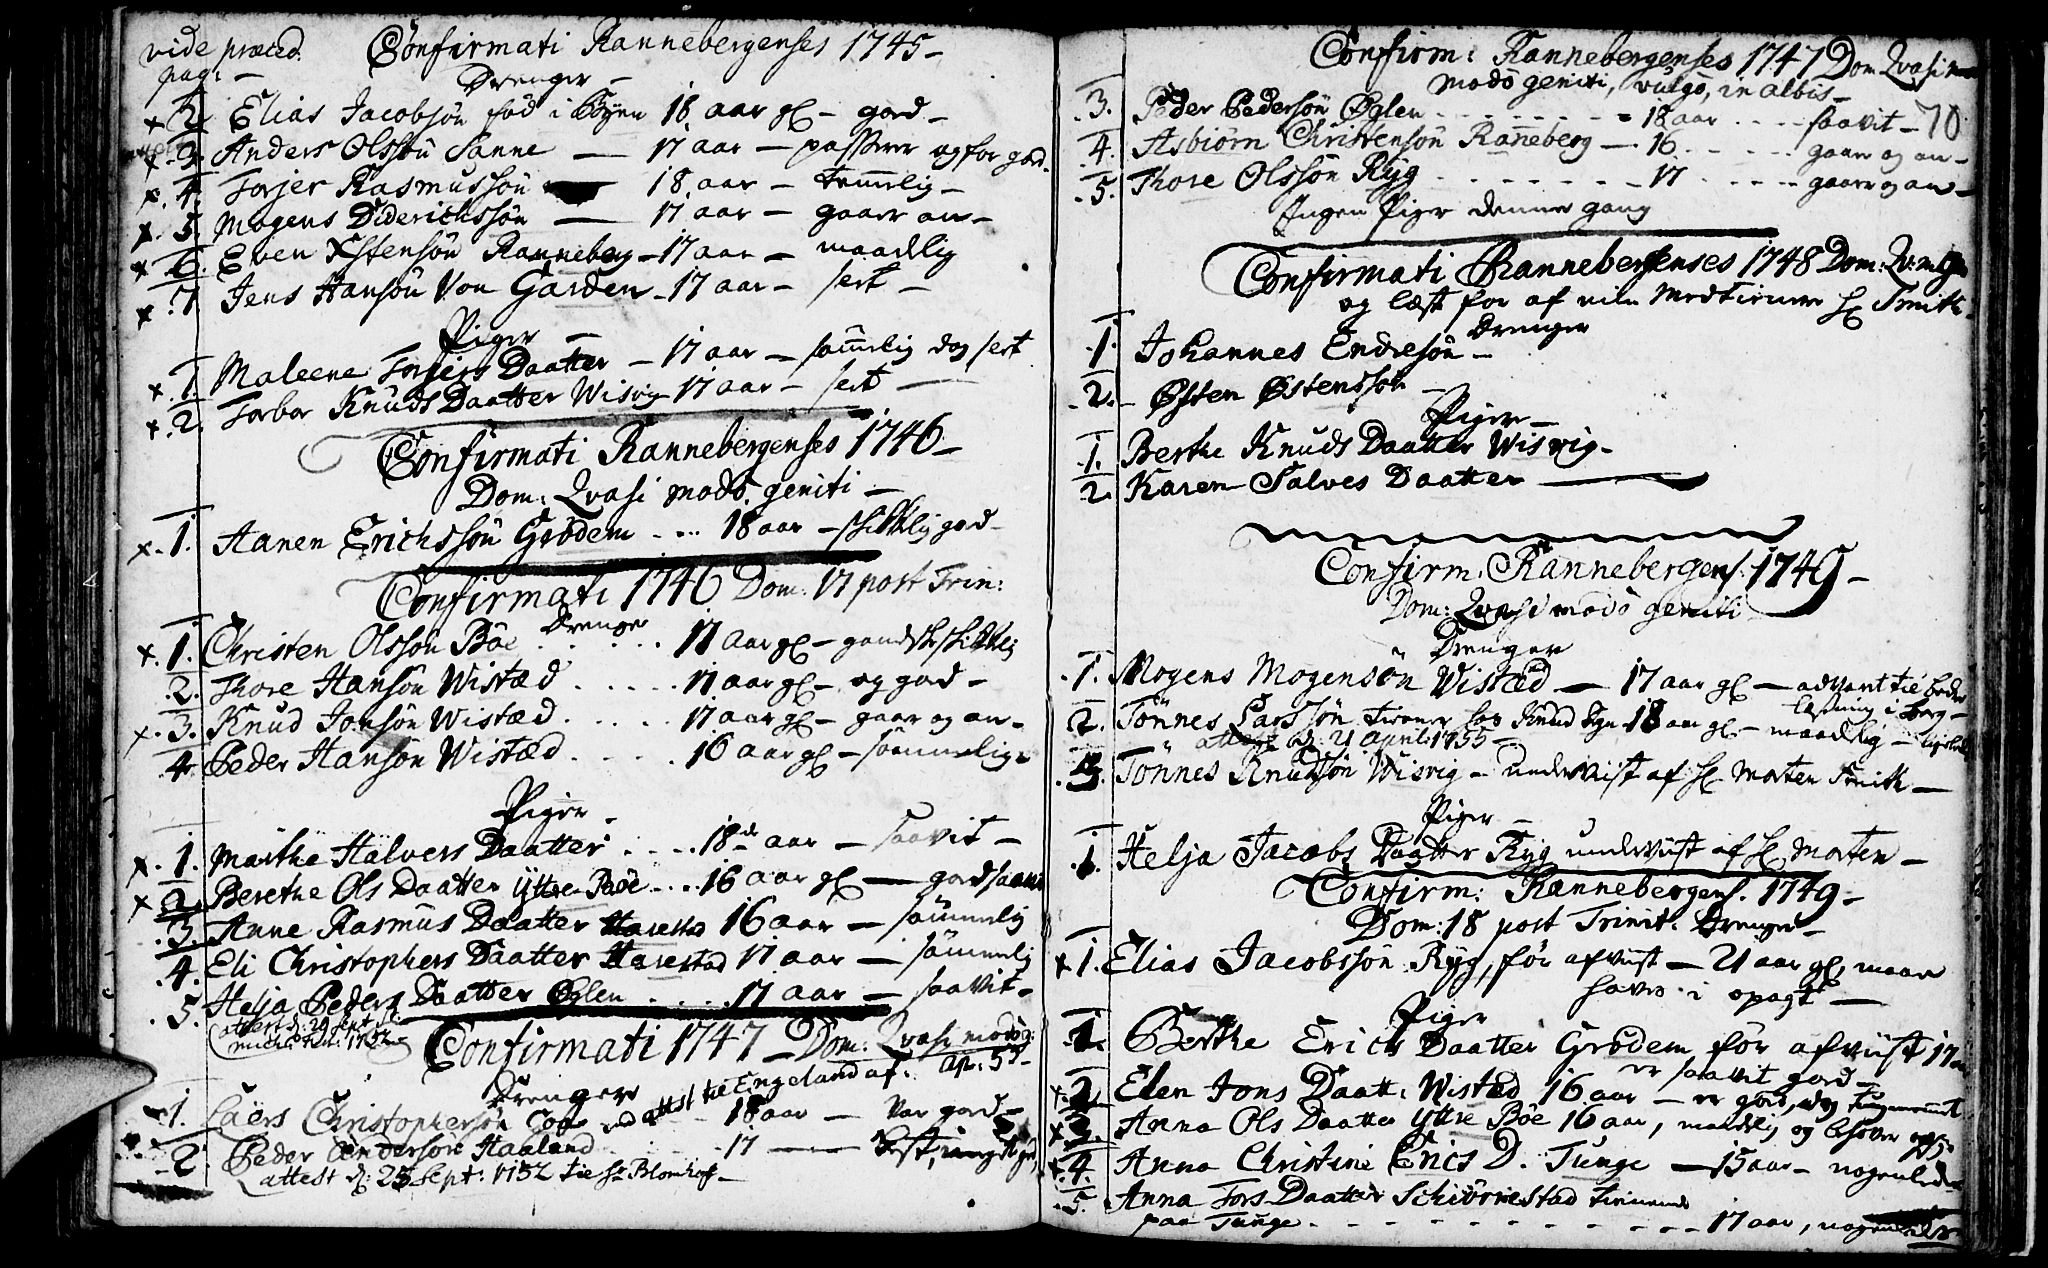 vide præced. pag: —
Confirmati Rannebergenses 1745 —
Drenger —
2. Elias Jacobsön föd i Byen 18 aar gl — god —
3. Anders Olssön Sanne — 17 aar — og for god.
4. Torjer Rasmussön — 18 aar — temelig —
5. Mogens Diderichssön — 17 aar — gaar an —
6. Even Østensön Ranneberg — 17 aar — maadlig
7. Jens Hansön Von Garden — 17 aar — slet —
Piger —
1. Maleene Torjers Daatter — 17 aar — dog slet
2. Torbor Knuds Daatter Wisvig 17 aar — slet —
Confirmati Rannebergenses 1746 —
Dom: Qvasi modo geniti —
1. Aanen Erichssön Grödem .... 18 aar — skikklig god —
Confirmati 1746 Dom: 17 post Trin:
Drenger
1. Christen Olssön Böe ..... 17 aar gl — gandske skikklig
2. Thore Hansön Wistæd ..... 17 aar gl — og god —
3. Knud Jonsön Wistæd ..... 17 aar gl — gaar og an —
4. Peder Hansön Wistæd ..... 16 aar gl — sömmelig —
Piger —
1. Marthe Halvers Daatter .... 18de aar — saavit —
2. Berethe Ols Daatter Yttre Böe .... 16 aar gl — god
3. Anne Rasmus Daatter Harestad 16 aar — sömmelig
4. Eli Christophers Daatter Harestad 17 aar — sömmelig
5. Helja Peders Daatter Øglen ..... 17 aar — saavit —
attest d: 29 Sept
1752
Confirmati 1747 — Dom: Qvasi modo g:
Drenger
attest til Engeland af. ap: 55 —
1. Laers Christophersön 18 aar — Var god —
2. Peder Andersön Haaland ..... 17 —
attest d: 25 Sept: 1752 til Sr Blomhof —
Confirm: Rannebergenses 1747 Dom Qvasi
modo geniti, vulgo, in albis —
70
3. Peder Pedersön Øglen ..... 18 aar .... saavit —
4. Asbiörn Christensön Ranneberg — 16 ..... gaar og an —
5. Thore Olssön Ryg ..... 17 .... gaar og an —
Ingen Piger denne gang
Confirmati Rannebergenses 1748 Dom: Qv: m: g:
og læst for af Sr Smith —
Drenger
1. Johannes Endresön —
2. Østen Østenssön —
Piger —
1. Berthe Knuds Daatter Wisvig —
2. Karen Salves Daatter —
Confirm: Rannebergens: 1749 —
Dom: Qvasi modo geniti
Drenger
1. Mogens Mogensön Wistæd — 17 aar gl — advaret til bedre
læsning i bog —
2. Tönnes Larssön tiener hos Knud 18 aar gl — maadelig —
attest d: 21 April 1755 —
3. Tönnes Knudsön Wisvig — underviist af Sr Morten Smith —
Piger —
1. Helja Jacobs Daatter Ryg underviist af Sr Morten —
Confirm: Rannebergens. 1749 —
Dom: 18 post Trinit: Drenger —
1. Elias Jacobssön Ryg, för afviist — 21 aar gl, maa
haves i opagt —
Piger
1. Berthe Erichs Daatter Grödem för afviist 17
er saavit god —
2. Elen Jons Daatt: Wistæd 16 aar — er god, dog
3. Anna Ols Daatter Yttre Böe 16 aar, maadelig og
4. Anna Christine Erics D. Tunge — 15 aar — nogenledes
5. Anna Tors Daatter Schiörrestad tienende
paa Tunge ..... 17 aar, nogenledes